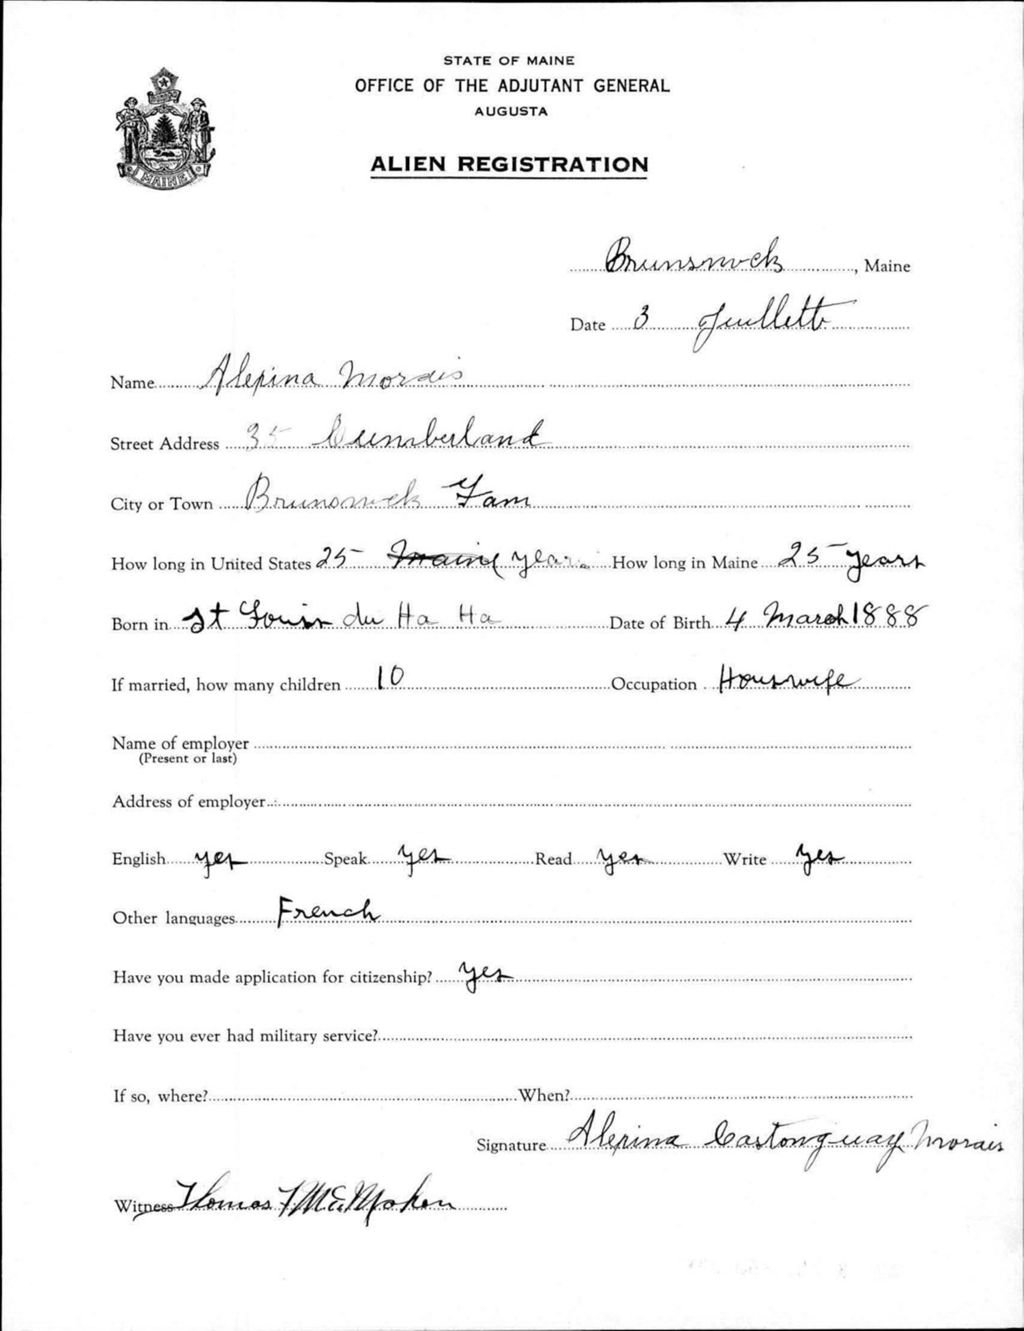 STATE OF MAINE
OFFICE OF THE ADJUTANT GENERAL
AUGUSTA
MAINE
ALIEN REGISTRATION
Brunswick, Maine
Date 3 Juillett
Name Alexina Morais
Street Address 35 Cumberland
City or Town Brunswick
How long in United States 25 years How long in Maine 25 years
Born in St Louis du Ha Ha Date of Birth 4 March 1888
If married, how many children 10 Occupation Houswife
Name of employer
(Present or last)
Address of employer
English yes Speak yes Read yes Write yes
Other languages French
Have you made application for citizenship? yes
Have you ever had military service?
If so, where? When?
Signature Alexina Castonguay Morais
Witness Thomas